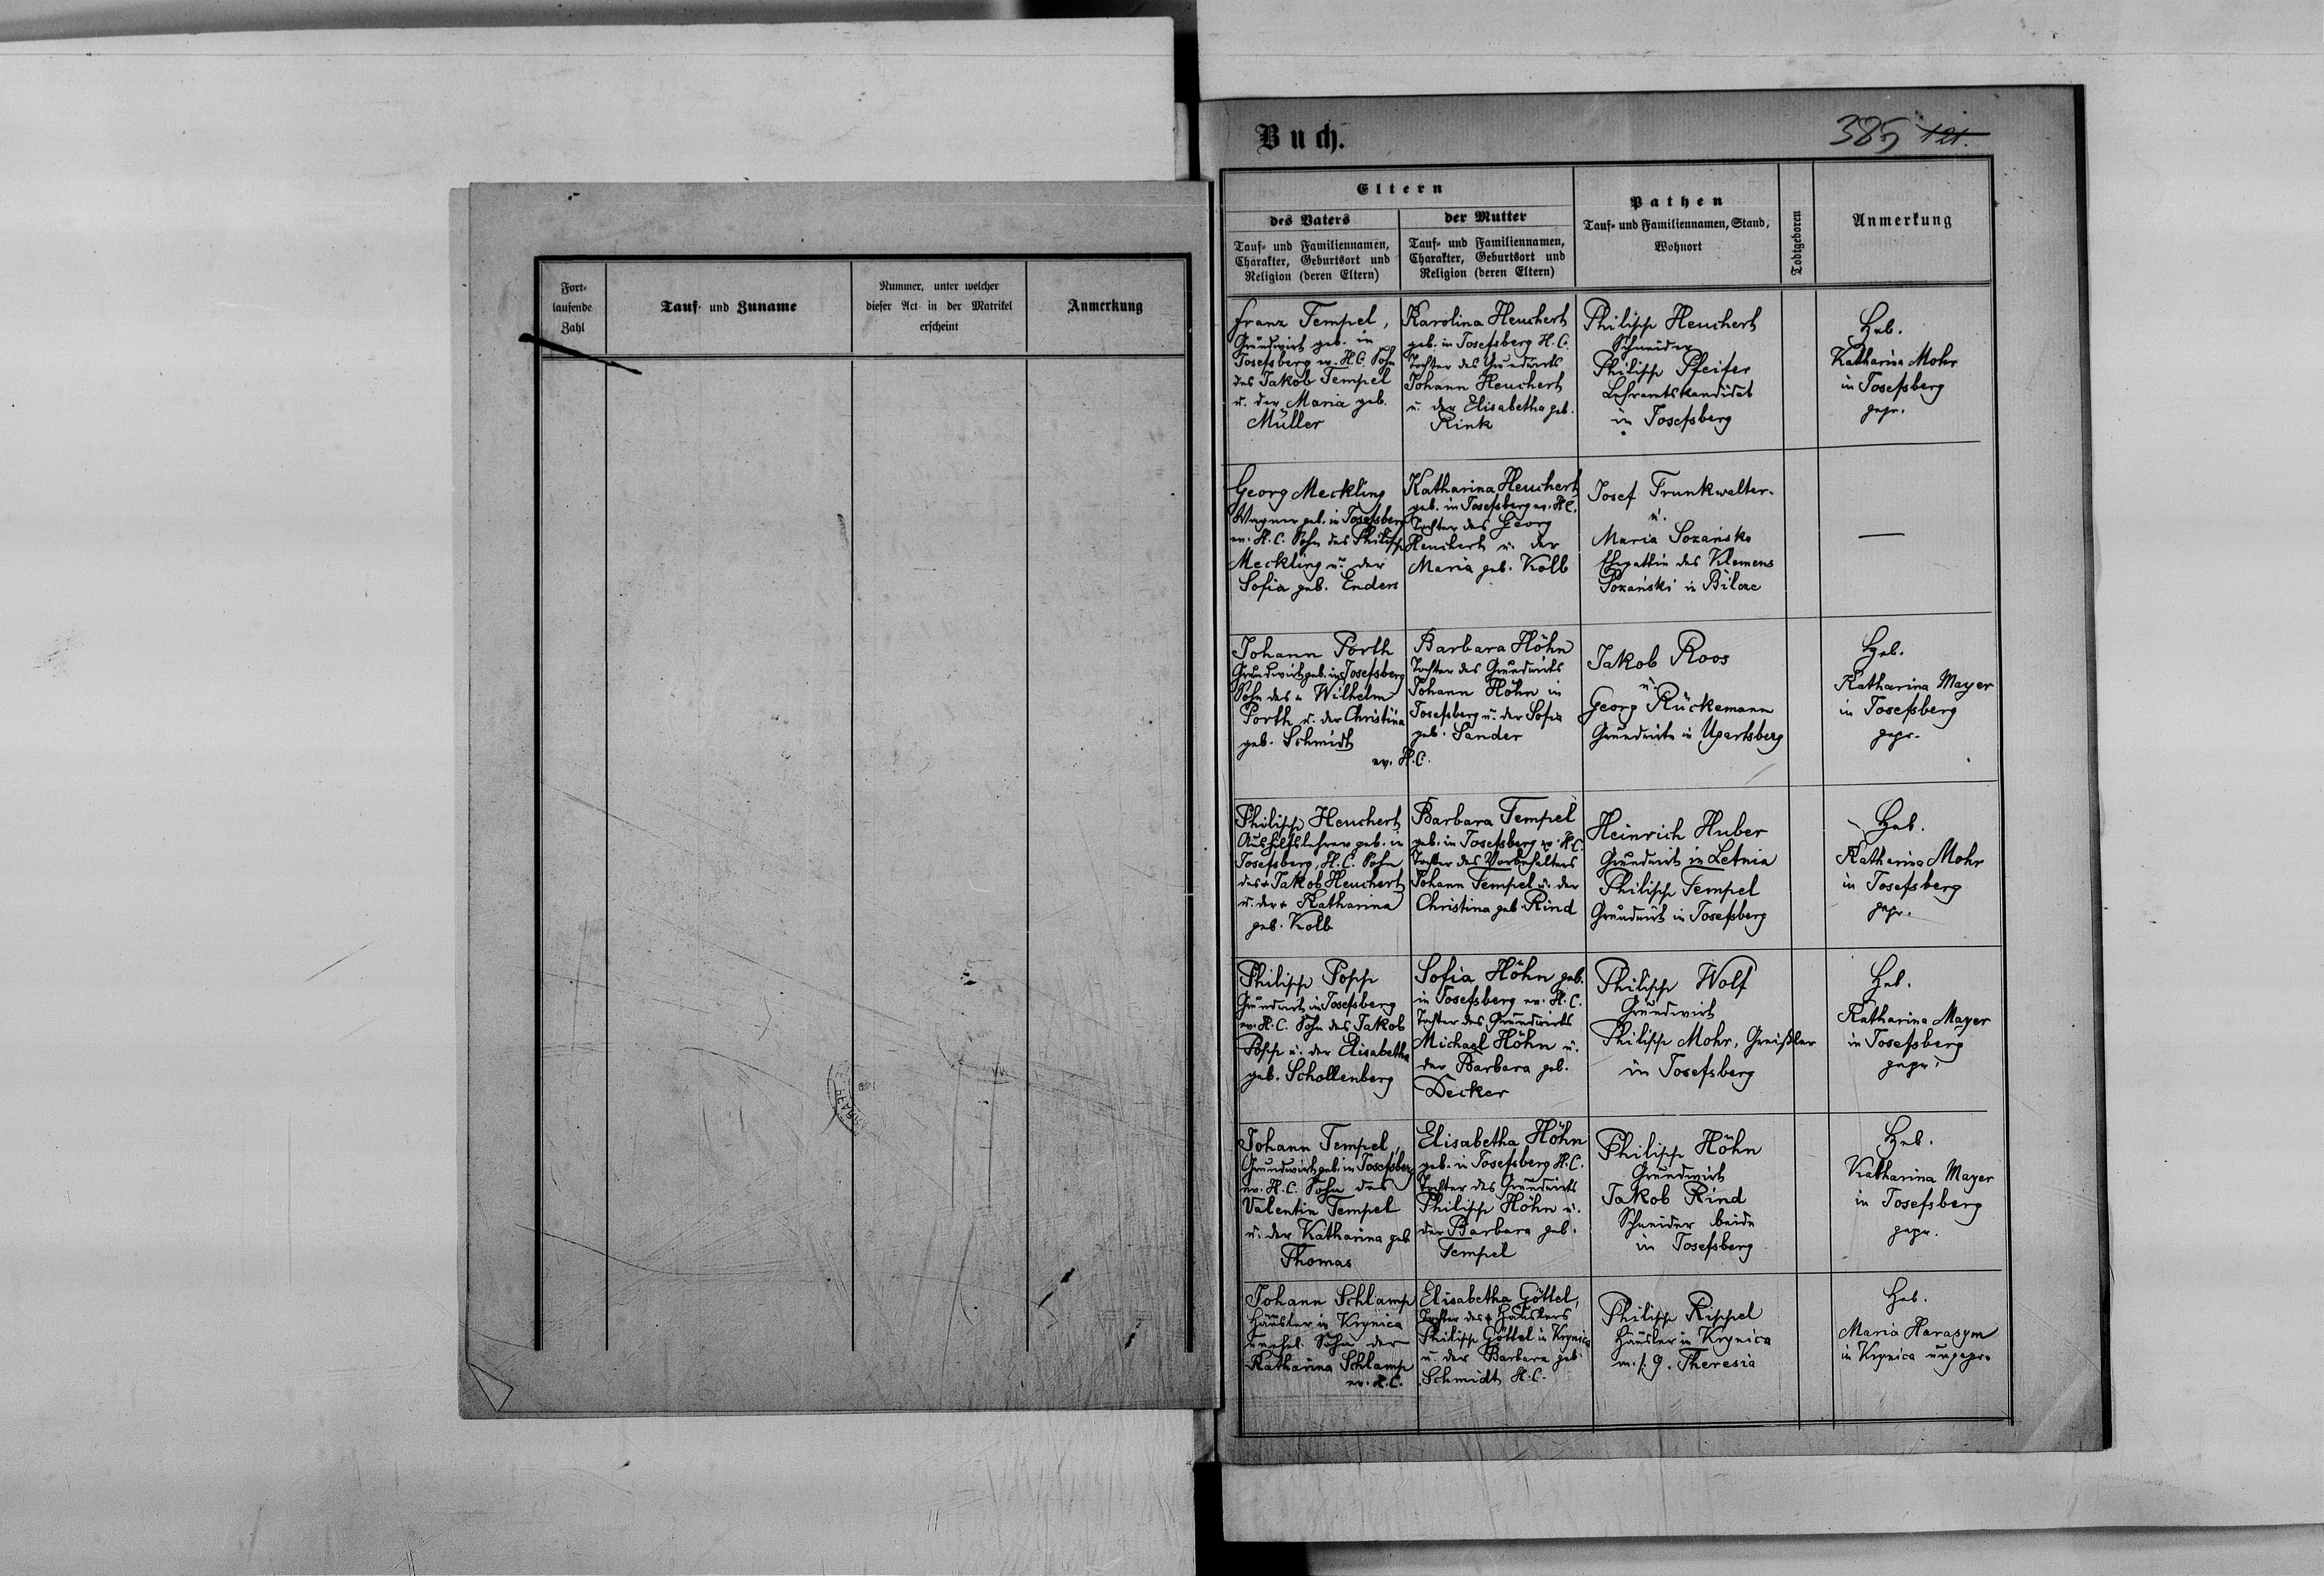 Fort-
laufende
Zahl
Tauf- und Zuname
Nummer, unter welcher
dieser Act in der Matrikel
erscheint
Anmerkung
Buch.
385 121.
Eltern
des Vaters
Tauf- und Familiennamen,
Charakter, Geburtsort und
Religion (deren Eltern)
der Mutter
Tauf- und Familiennamen,
Charakter, Geburtsort und
Religion (deren Eltern)
Pathen
Tauf- und Familiennamen, Stand,
Wohnort
Todtgeboren
Anmerkung
Franz Tempel,
Grundwirt geb. in
Josefsberg ev. H.C. Sohn
des Jakob Tempel
u. der Maria geb.
Müller
Karolina Heuchert
geb. in Josefsberg H.C.
Tochter des Grundwirts
Johann Heuchert
u. der Elisabetha geb.
Rink
Philipp Heuchert
Schneider
Philipp Pfeifer
Lehramtskandidat
in Josefsberg
Heb.
Katharina Mohr
in Josefsberg
gepr.
Georg Meckling
Wagner geb. in Josefsberg
ev. H.C. Sohn des Philipp
Meckling u. der
Sofia geb. Enders
Katharina Heuchert
geb. in Josefsberg ev. H.C.
Tochter des Georg
Heuchert u. der
Maria geb. Kolb
Josef Trunkwalter
u.
Maria Sozańska
Ehegattin des Klemens
Sozański in Bilcze
—
Johann Porth
Grundwirt geb. in Josefsberg
Sohn des + Wilhelm
Porth u. der Christina
geb. Schmidt
Barbara Höhn
Tochter des Grundwirts
Johann Höhn in
Josefsberg u. der Sofia
geb. Sander
ev. H.C.
Jakob Roos
u.
Georg Rückemann
Grundwirte in Ugartsberg
Heb.
Katharina Mayer
in Josefsberg
gepr.
Philipp Heuchert
Aushilfslehrer geb. in
Josefsberg, H.C. Sohn
des + Jakob Heuchert
u. der + Katharina
geb. Kolb
Barbara Tempel
geb. in Josefsberg ev. H.C.
Tochter des Vorbehalters
Johann Tempel u. der
Christina geb. Rind
Heinrich Huber
Grundwirt in Letnia
Philipp Tempel
Grundwirt in Josefsberg
Heb.
Katharina Mohr
in Josefsberg
gepr.
Philipp Popp
Grundwirt in Josefsberg
ev. H.C. Sohn des Jakob
Popp u. der Elisabetha
geb. Schollenberg
Sofia Höhn geb.
in Josefsberg ev. H.C.
Tochter des Grundwirts
Michael Höhn u.
der Barbara geb.
Decker
Philipp Wolf
Grundwirt
Philipp Mohr, Greißler
in Josefsberg
Heb.
Katharina Mayer
in Josefsberg
gepr.
Johann Tempel,
Grundwirt geb. in Josefsberg
ev. H.C. Sohn des
Valentin Tempel
u. der Katharina geb
Thomas
Elisabetha Höhn
geb. in Josefsberg H.C.
Tochter des Grundwirts
Philipp Höhn u.
der Barbara geb.
Tempel
Philipp Höhn
Grundwirt
Jakob Rind
Schneider beide
in Josefsberg
Heb.
Katharina Mayer
in Josefsberg
gepr.
Johann Schlamp
Häusler in Krynica
unehel. Sohn der
Katharina Schlamp
ev. H.C.
Elisabetha Göttel,
Tochter des + Häuslers
Philipp Göttel in Krynica
u. der Barbara geb.
Schmidt H.C.
Philipp Rippel
Häusler in Krynica
m. s. G. Theresia
Heb.
Maria Harasym
in Krynica ungepr.